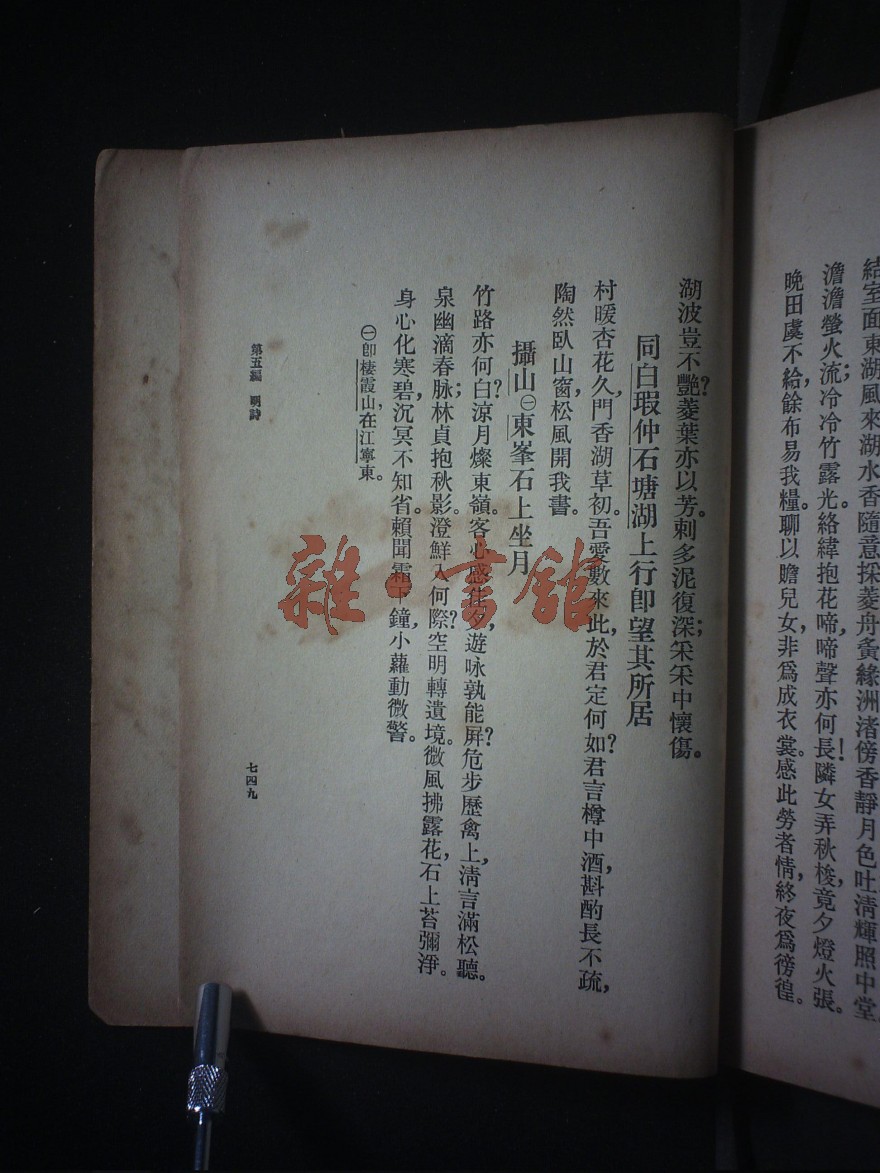 結室面東湖風來湖水香隨意採菱舟夤緣洲渚傍香靜月色吐清輝照中堂。
澹澹螢火流；冷冷竹露光。絡緯抱花啼，啼聲亦何長！隣女弄秋梭，竟夕燈火張。
晚田虞不給，餘布易我糧。聊以贍兒女，非爲成衣裳。感此勞者情，終夜爲徬徨。
湖波豈不豔？菱葉亦以芳。刺多泥復深；采采中懷傷。
同白瑕仲石塘湖上行卽望其所居
村暖杏花久，門香湖草初。吾愛數來此，於君定何如？君言樽中酒，斟酌長不疏，
陶然臥山窗，松風開我書。
攝山㊀東峯石上坐月
竹路亦何白？涼月燦東嶺。客心感佳夕，遊咏孰能屛？危步歷禽上，淸言滿松聽。
泉幽滴春脉；林貞抱秋影。澄鮮入何際？空明轉遺境。微風拂露花，石上苔彌淨。
身心化寒碧，沉冥不知省。賴聞霜下鐘，小蘿動微警。
㊀卽棲霞山，在江寧東。
第五編　明詩
七四九
雜·書館